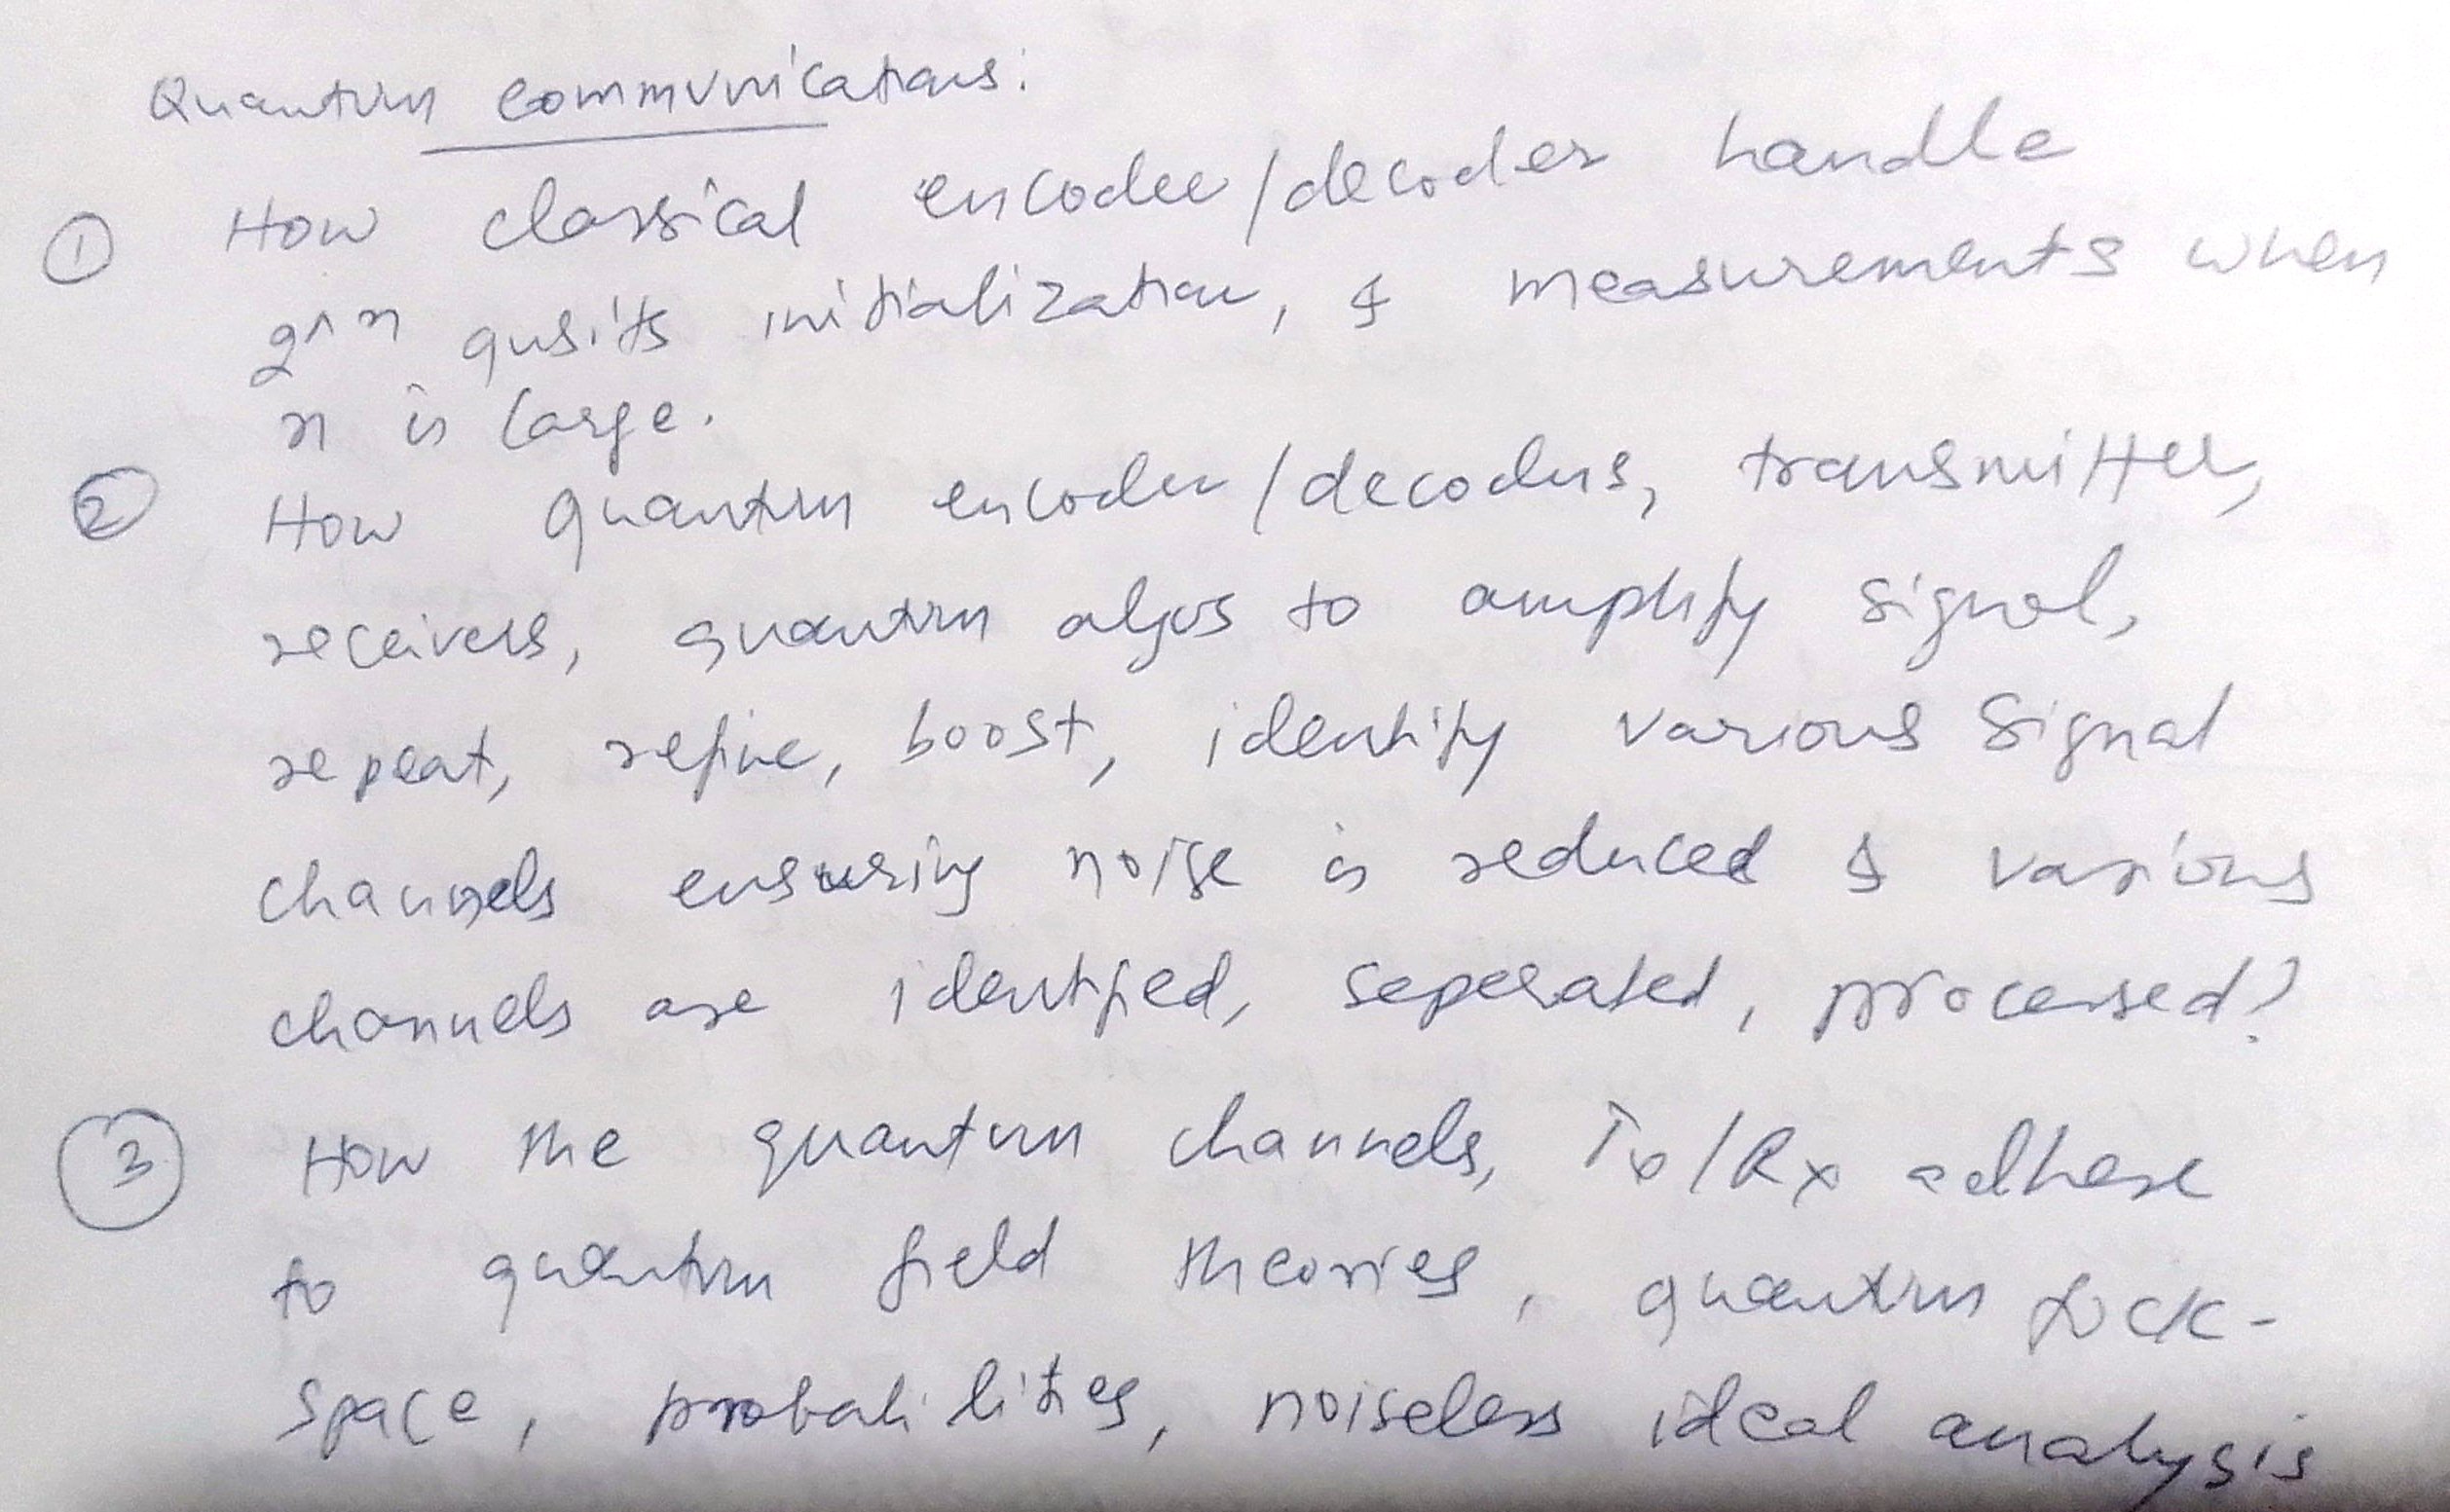 Quantum communications:
① How classical encoder/decoder handle
2^n qubits initialization, & measurements when
n is large.
② How quantum encoder/decoders, transmitter,
receivers, quantum algos to amplify signal,
repeat, refine, boost, identify various signal
channels ensuring noise is reduced & various
channels are identified, seperated, processed?
③ How the quantum channels, Tx/Rx adhere
to quantum field theories, quantum Fock-
space, probabilities, noiseless ideal analysis